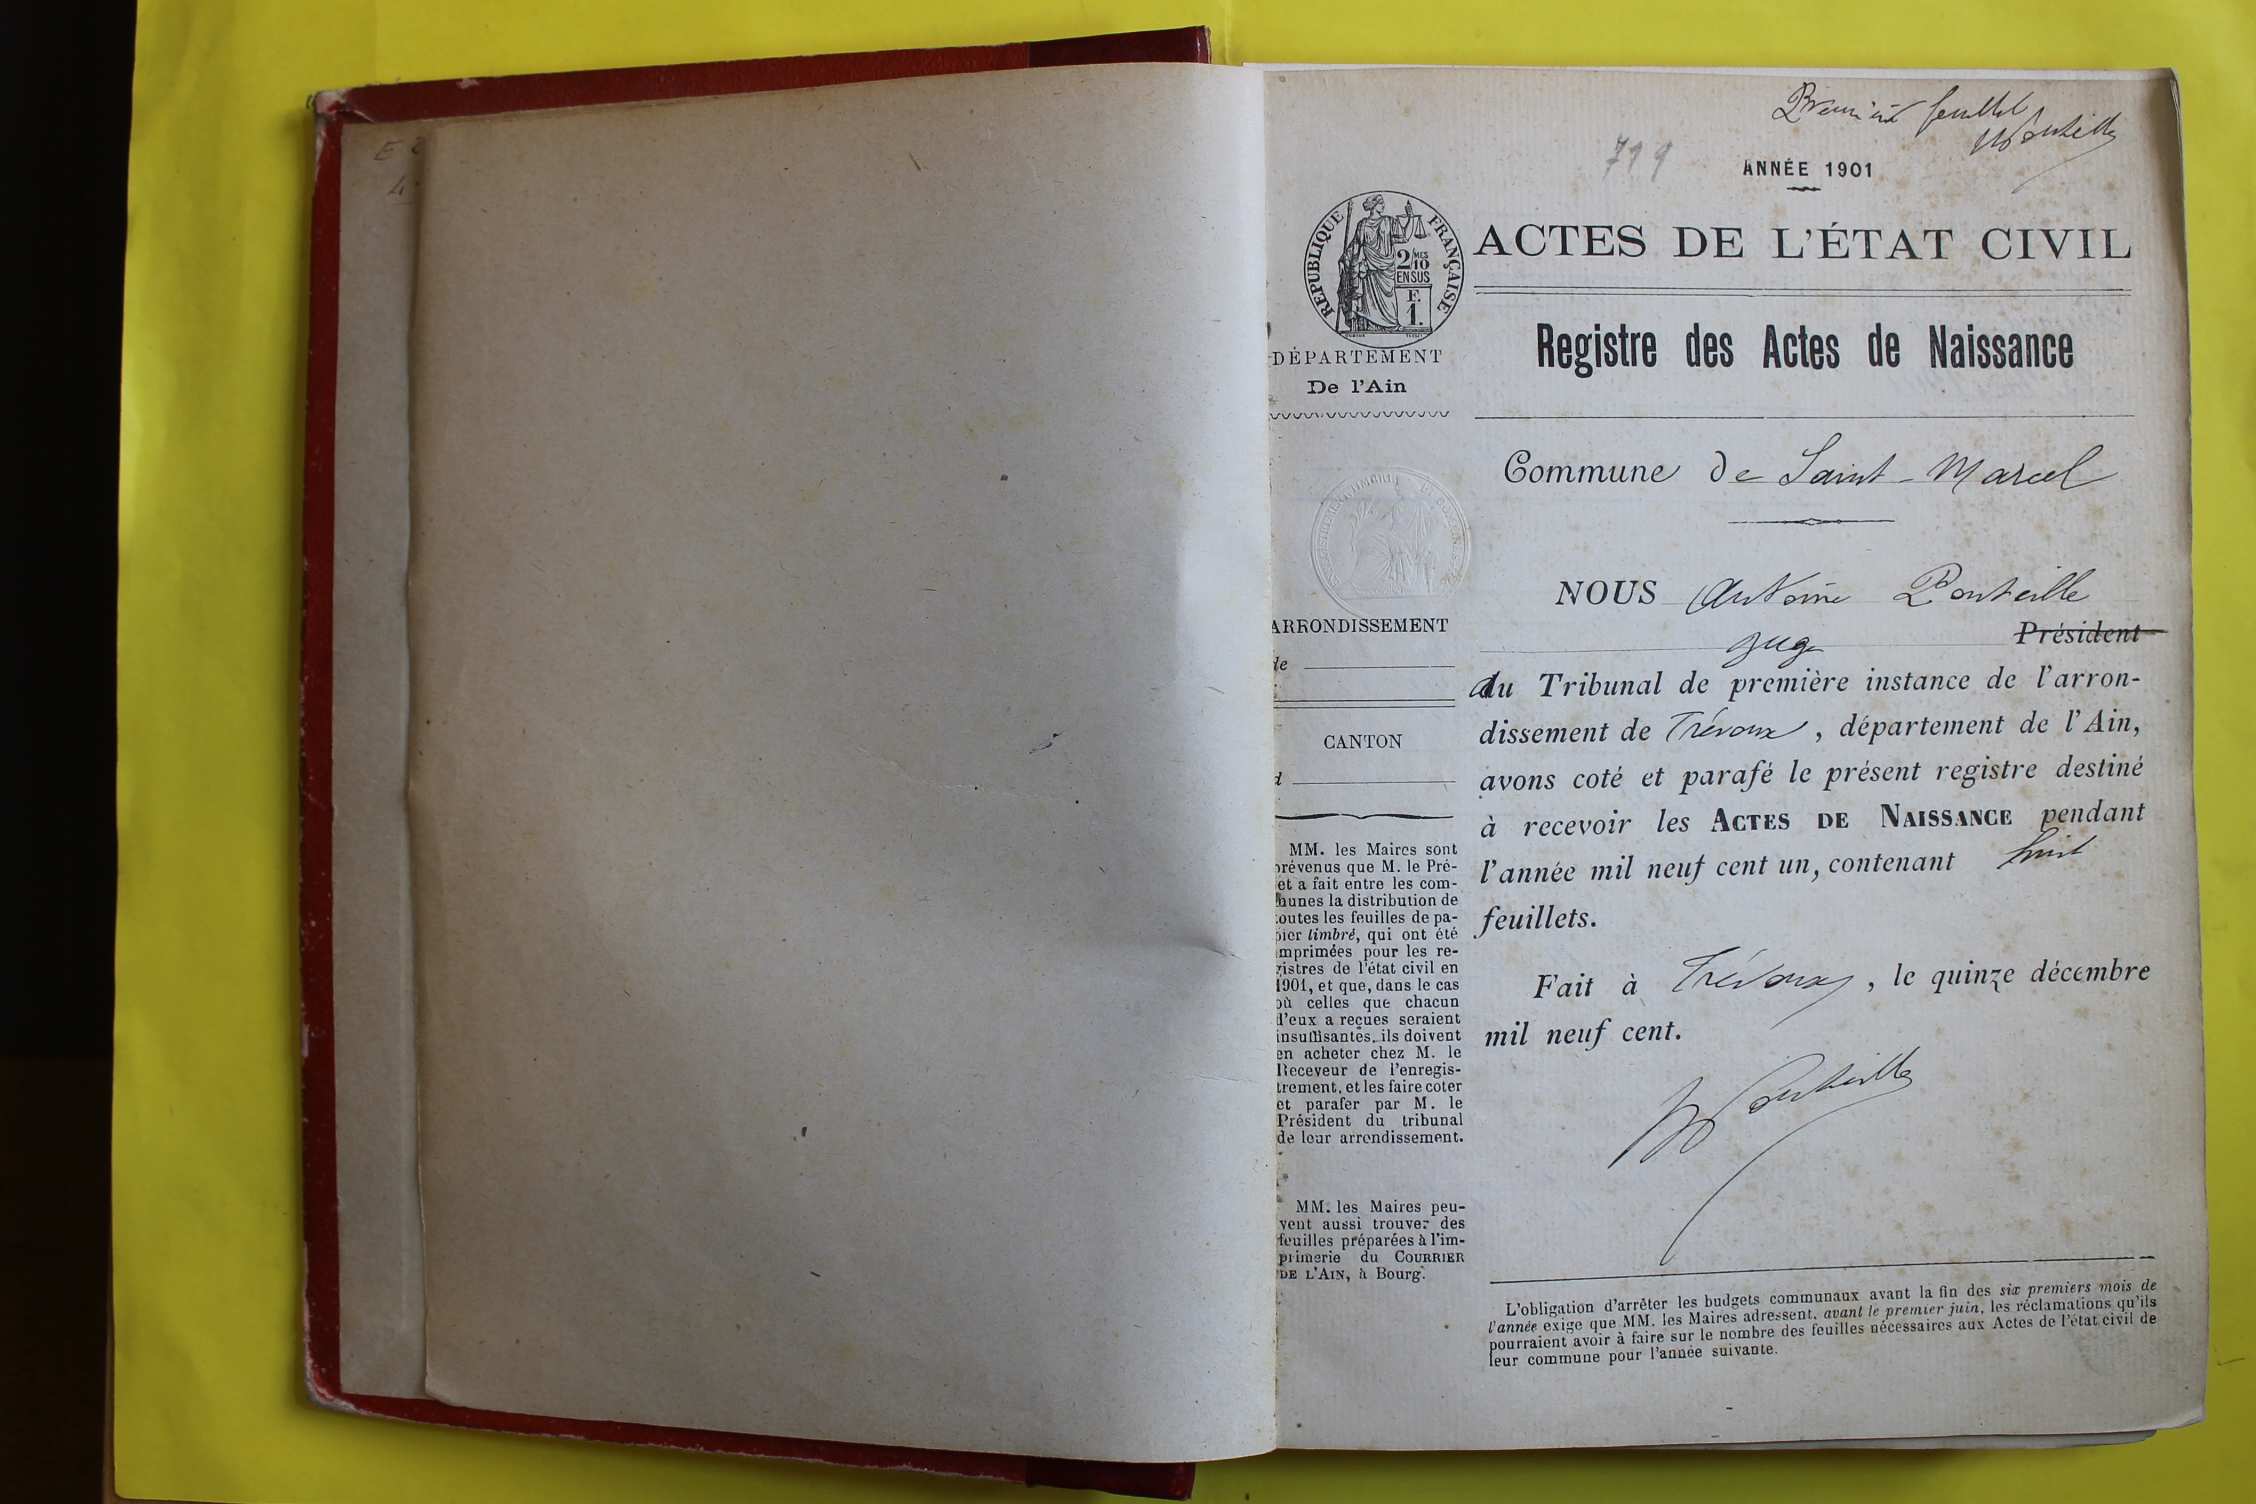 E 2
4
Premier feuillet
Ponteille
719
ANNÉE 1901
ACTES DE L'ÉTAT CIVIL
RÉPUBLIQUE FRANÇAISE
2/10 MES
EN SUS
F.
1.
DÉPARTEMENT
De l'Ain
Registre des Actes de Naissance
Commune de Saint-Marcel
ARRONDISSEMENT
de
CANTON
d
MM. les Maires sont
prévenus que M. le Pré-
et a fait entre les com-
munes la distribution de
toutes les feuilles de pa-
pier timbré, qui ont été
imprimées pour les re-
gistres de l'état civil en
1901, et que, dans le cas
où celles que chacun
d'eux a reçues seraient
insuffisantes, ils doivent
en acheter chez M. le
Receveur de l'enregis-
trement, et les faire coter
et parafer par M. le
Président du tribunal
de leur arrondissement.
MM. les Maires peu-
vent aussi trouver des
feuilles préparées à l'im-
primerie du COURRIER
DE L'AIN, à Bourg.
NOUS Antoine Ponteille
juge Président
du Tribunal de première instance de l'arron-
dissement de Trévoux, département de l'Ain,
avons coté et parafé le présent registre destiné
à recevoir les ACTES DE NAISSANCE pendant
l'année mil neuf cent un, contenant huit
feuillets.
Fait à Trévoux, le quinze décembre
mil neuf cent.
Ponteille
L'obligation d'arrêter les budgets communaux avant la fin des six premiers mois de
l'année exige que MM. les Maires adressent, avant le premier juin, les réclamations qu'ils
pourraient avoir à faire sur le nombre des feuilles nécessaires aux Actes de l'état civil de
leur commune pour l'année suivante.